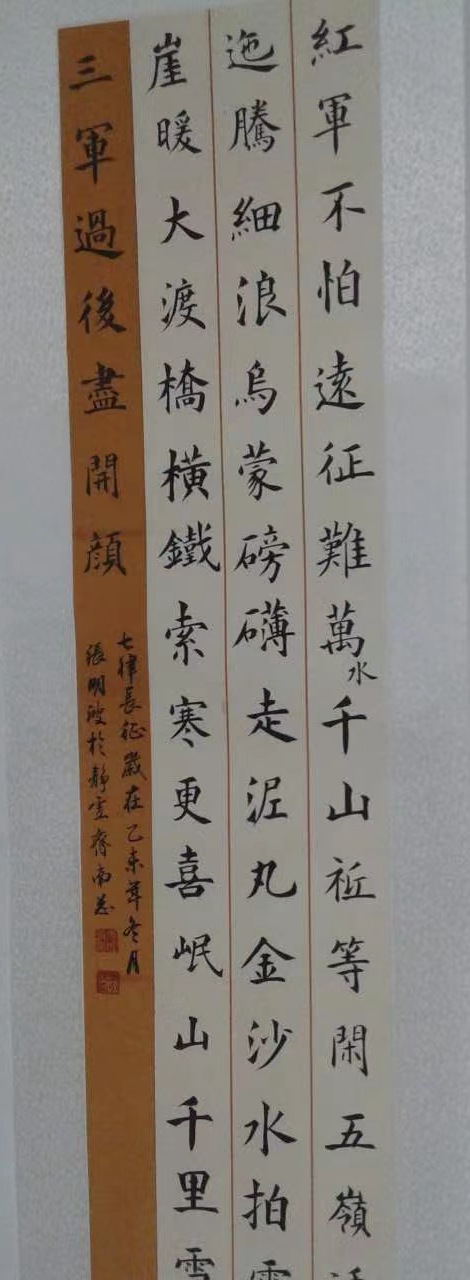 紅軍不怕遠征難萬水千山祇等閑五嶺
迤騰細浪烏蒙磅礴走泥丸金沙水拍雲
崖暖大渡橋橫鐵索寒更喜岷山千里雪
三軍過後盡開顏
七律長征歲在乙未年冬月
張明波於靜雲齋南